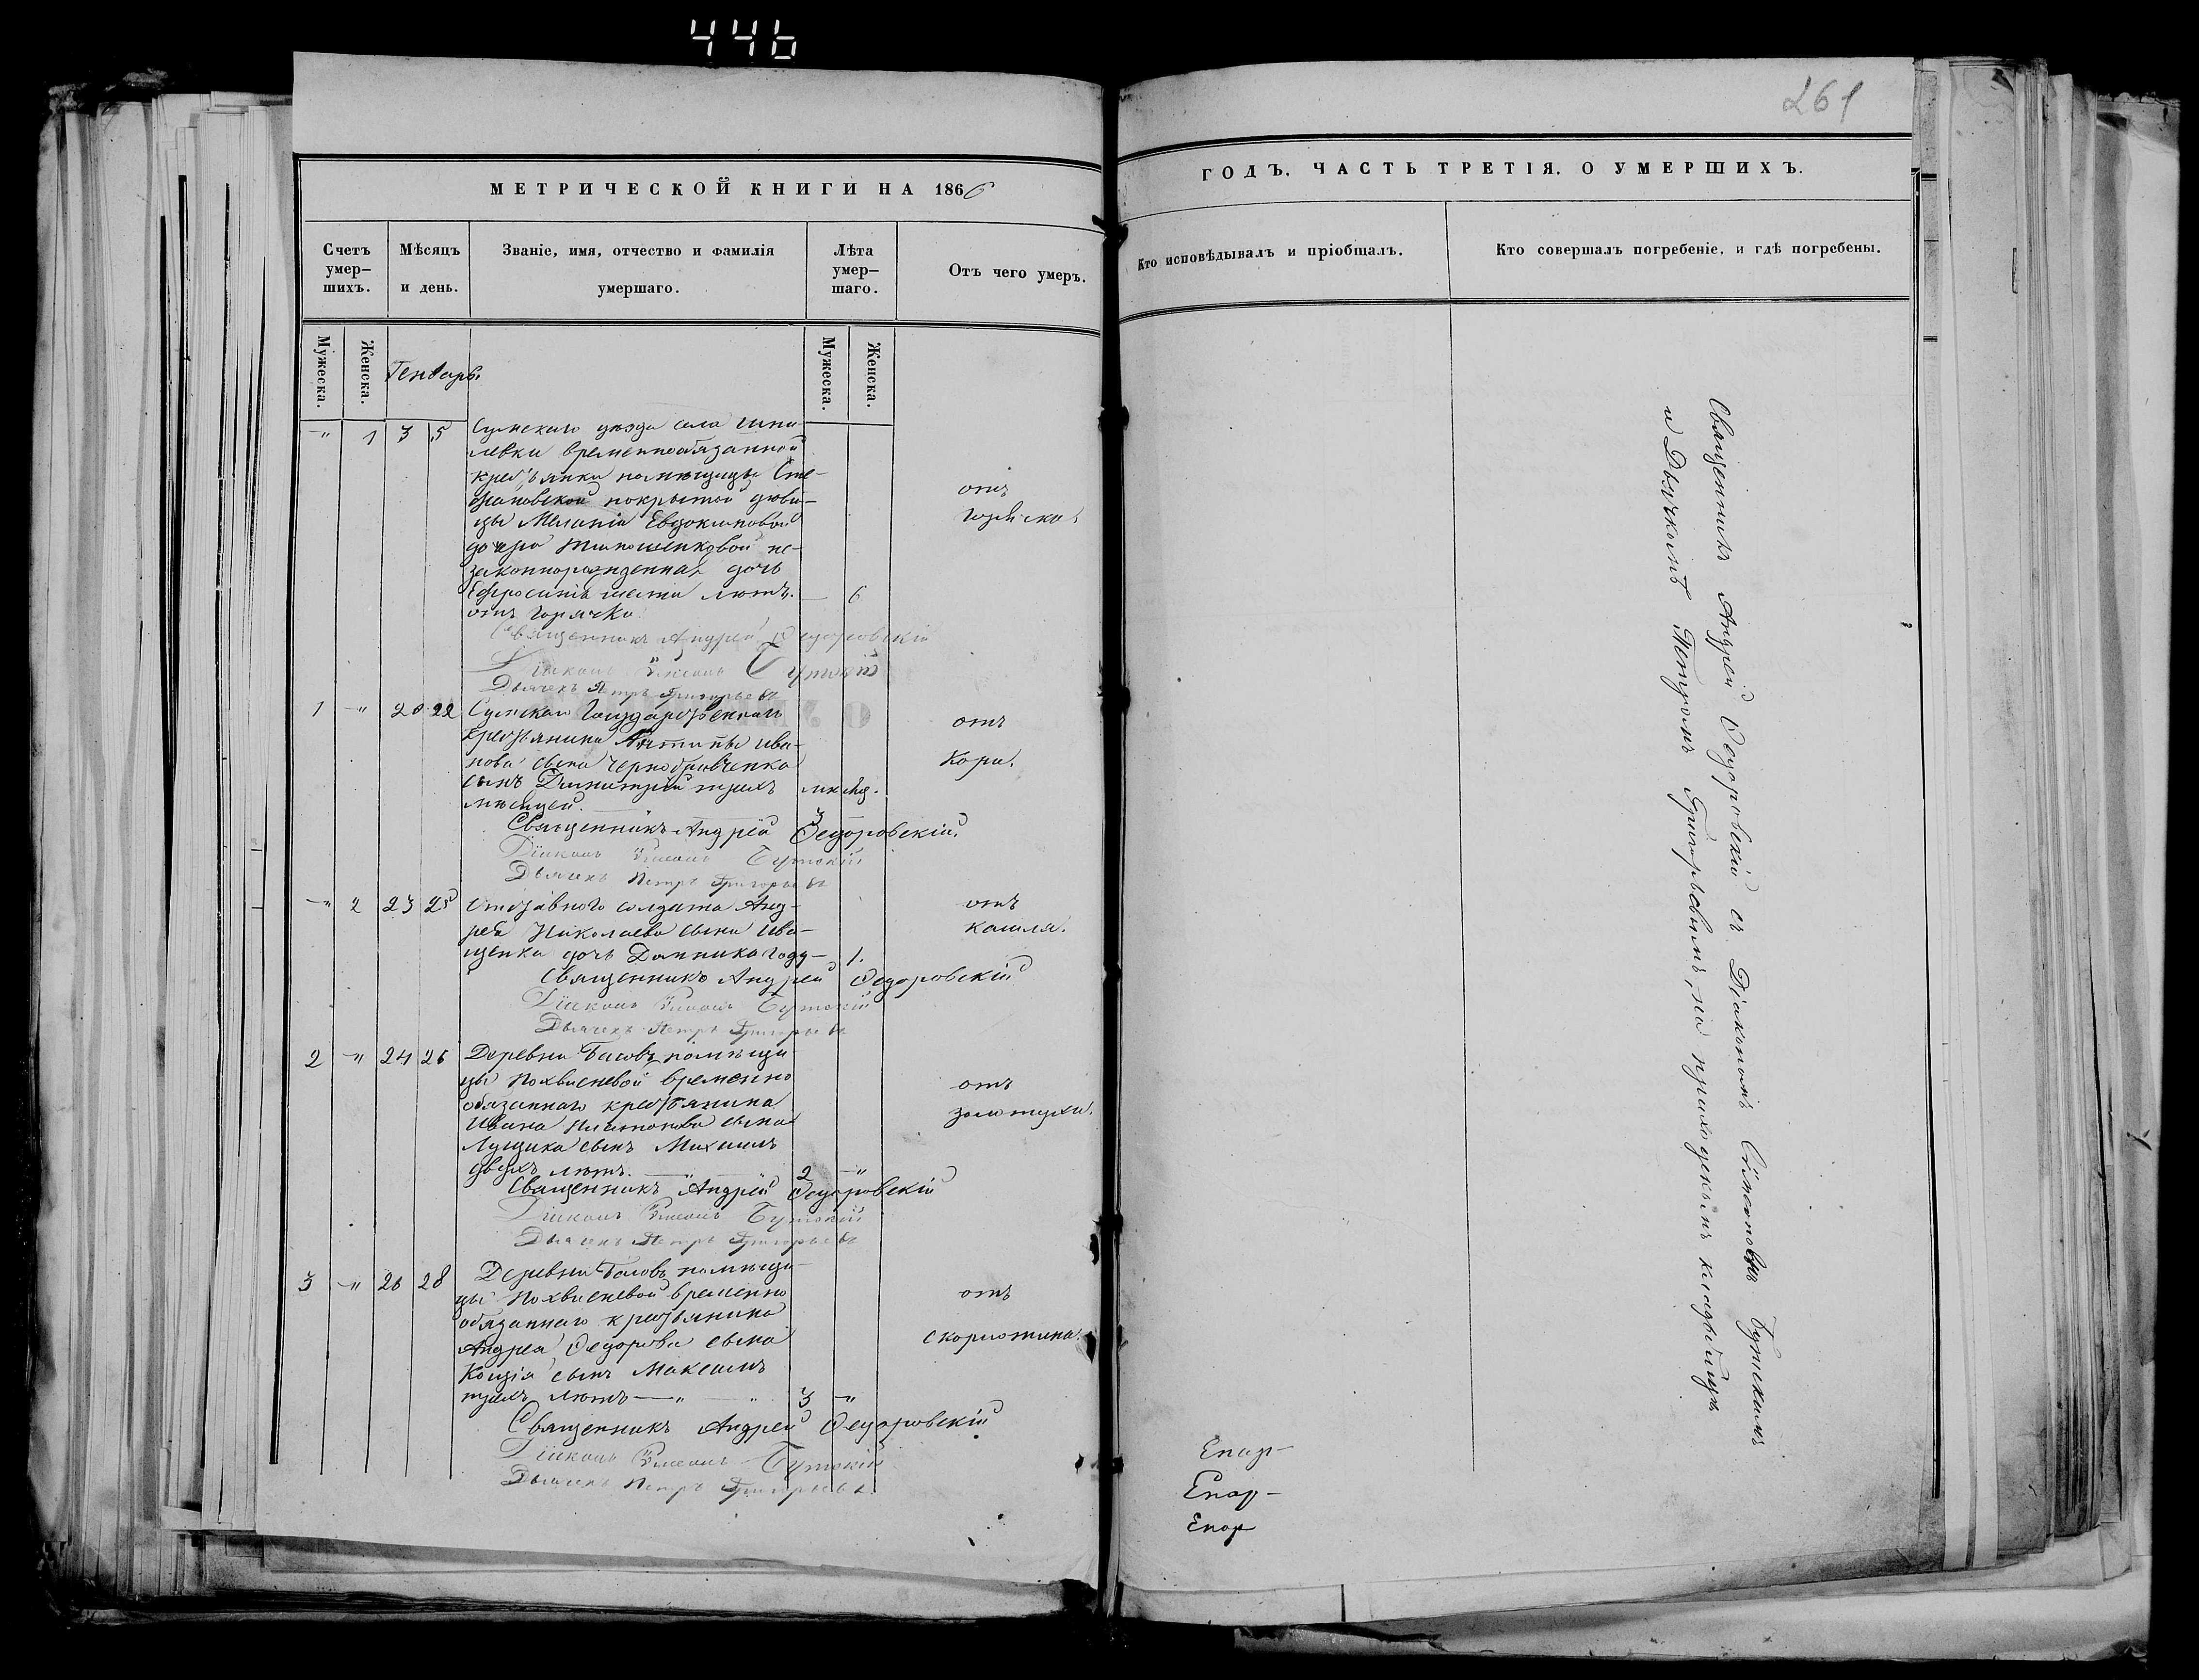 446
261
МЕТРИЧЕСКОЙ КНИГИ НА 1866
ГОДЪ, ЧАСТЬ ТРЕТІЯ, О УМЕРШИХЪ.
Счетъ умер-шихъ.
Мѣсяцъ и день.
Званіе, имя, отчество и фамилія умершаго.
Лѣта умер-шаго.
Отъ чего умеръ.
Кто исповѣдывалъ и пріобщалъ.
Кто совершалъ погребеніе, и гдѣ погребены.
Мужеска.
Женска.
Генварь
Мужеска.
Женска.
-" 1 3 5 Сумскаго уѣзда села
левки временнообязанной
крестьянки помѣщицы Сте-
пановской покрытой дѣви-
цы Меланіи Евдокимовой
дочери Тимошенковой не-
законнорожденная дочь
Ефросинія шести лѣтъ. — 6
отъ горячки.
отъ
горячки.
Священникъ Андрей Федоровскій
Діаконъ Симеонъ Бутскій
Дьячекъ Петръ Григорьевъ
1 -" 20 22 Сумскаго Государственнаго
крестьянина Антипы Ива-
нова сына Чернобривченка
сынъ Димитрій трехъ мѣсяц.
мѣсяцей. 3
отъ
кори.
Священникъ Андрей Федоровскій
Діаконъ Симеонъ Бутскій
Дьячекъ Петръ Григорьевъ
-" 2 23 25 Отставного солдата Анд-
рея Николаева сына Ива-
щенка дочь Домника году — 1.
отъ
кашля.
Священникъ Андрей Федоровскій
Діаконъ Симеонъ Бутскій
Дьячекъ Петръ Григорьевъ
2 -" 24 26 Деревни Басовъ помѣщи-
цы Похвисневой временно
обязаннаго крестьянина
Ивана Платонова сына
Лущика сынъ Михаилъ
двухъ лѣтъ. 2 -"
отъ
золотухи.
Священникъ Андрей Федоровскій
Діаконъ Симеонъ Бутскій
Дьячекъ Петръ Григорьевъ
3 -" 26 28 Деревни Басовъ помѣщи-
цы Похвисневой временно
обязаннаго крестьянина
Андрея Федорова сына
Коція сынъ Максимъ
трехъ лѣтъ — 3 -"
отъ
скарлотина.
Священникъ Андрей Федоровскій
Діаконъ Симеонъ Бутскій
Дьячекъ Петръ Григорьевъ
Священникъ Андрей Федоровскій съ Діакономъ Симеономъ Бутскимъ
и Дьячкомъ Петромъ Григорьевымъ, на приходскомъ кладбищѣ
Епар-
Епар-
Епар